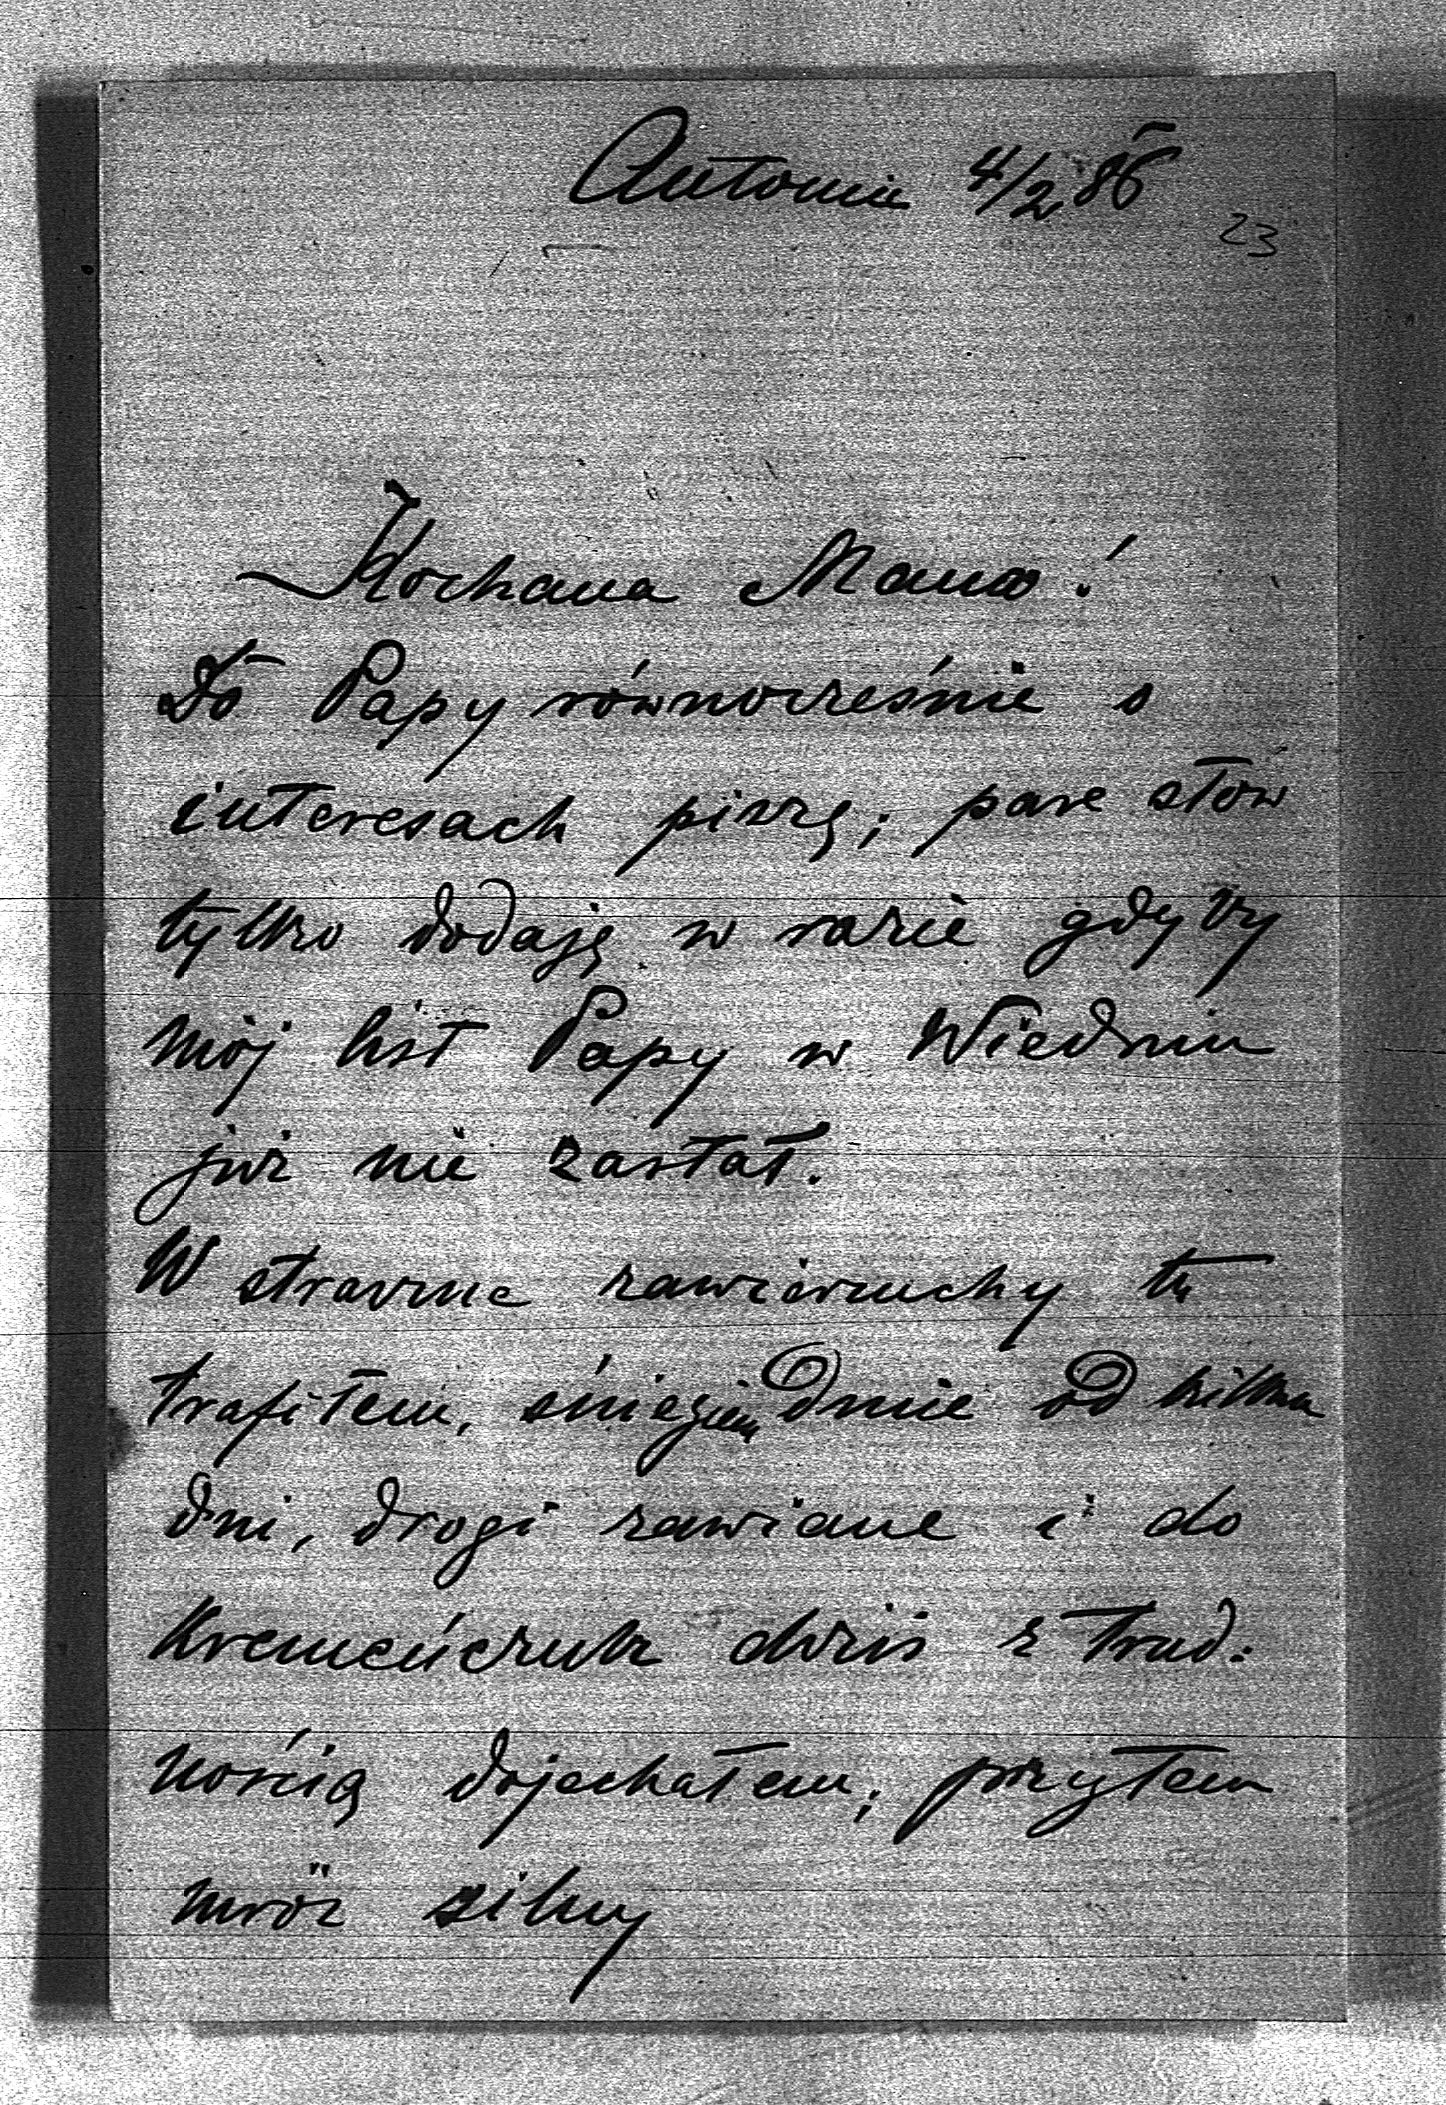 Antonin 4/2 86
23
Kochana Mamo!
Do Papy równocześnie o
interesach piszę; parę słów
tylko dodaję w razie gdyby
mój list Papy w Wiedniu
już nie zastał.
W straszne zawieruchy tu
trafiłem, śniegiem dmie od kilku
dni, drogi zawiane i do
Kremeńczuk dziś z trud:
nością dojechałem; przytem
mróz silny